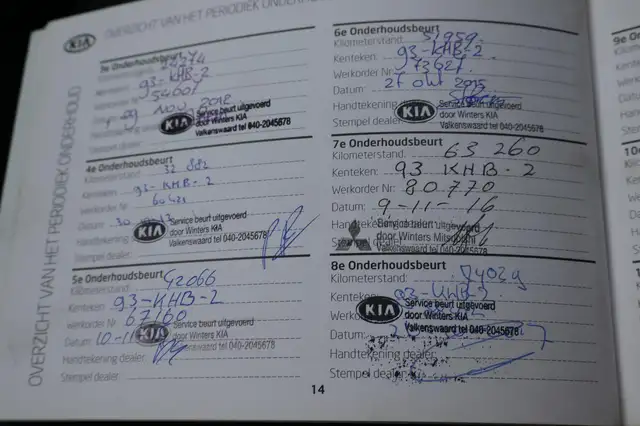 OVERZICHT VAN HET PERIODIEK ONDERHOUD
KIA
OVERZICHT VAN HET PERIODIEK ONDERHOUD
3e Onderhoudsbeurt
93-KHB-2
54601
09 NOV 2012
KIA Service beurt uitgevoerd
door Winters KIA
Valkenswaard tel 040-2045678
4e Onderhoudsbeurt
Kilometerstand: 32 882
Kenteken: 93-KHB-2
Werkorder Nr:
Datum: 30
KIA Service beurt uitgevoerd
door Winters KIA
Valkenswaard tel 040-2045678
Handtekening
Stempel dealer:
5e Onderhoudsbeurt
Kilometerstand: 42066
Kenteken: 93-KHB-2
Werkorder Nr: 67160
Datum: 10-11
KIA Service beurt uitgevoerd
door Winters KIA
Valkenswaard tel 040-2045678
Handtekening dealer:
Stempel dealer:
6e Onderhoudsbeurt
Kilometerstand: 51959
Kenteken: 93-KHB-2
Werkorder Nr: 73621
Datum: 27 okt 2015
Handtekening
KIA Service beurt uitgevoerd
door Winters KIA
Valkenswaard tel 040-2045678
Stempel dealer:
7e Onderhoudsbeurt
Kilometerstand: 63 260
Kenteken: 93 KHB-2
Werkorder Nr: 80770
Datum: 9-11-16
Service beurt uitgevoerd
door Winters Mitsubishi
Valkenswaard tel 040-2045678
8e Onderhoudsbeurt
Kilometerstand: 74029
Kenteken: 93-KHB-2
KIA Service beurt uitgevoerd
door Winters KIA
Valkenswaard tel 040-2045678
Datum:
Handtekening dealer:
Stempel dealer:
14
9e On